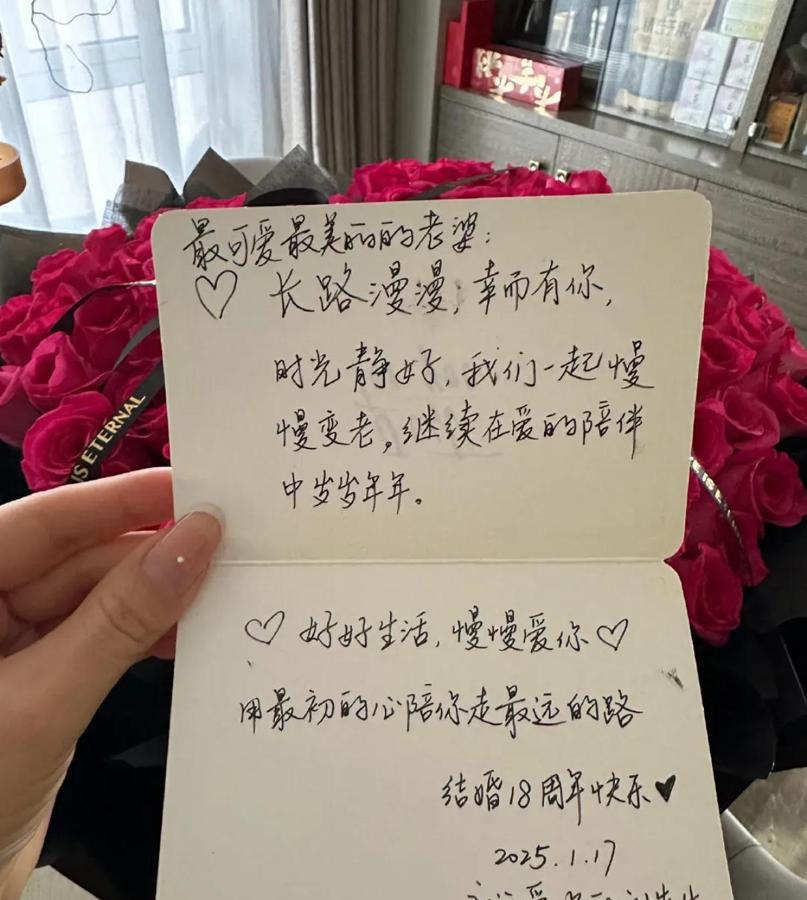 最可爱最美丽的老婆：
♡ 长路漫漫，幸而有你，
时光静好，我们一起慢
慢变老。继续在爱的陪伴
中岁岁年年。
♡ 好好生活，慢慢爱你♡
用最初的心陪你走最远的路
结婚18周年快乐♥
2025.1.17
IS ETERNAL